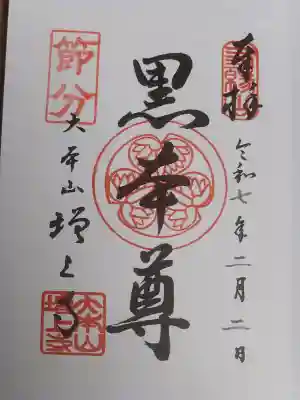 奉拝
令和七年二月二日
黒本尊
節分
大本山増上寺
大本山
増上寺